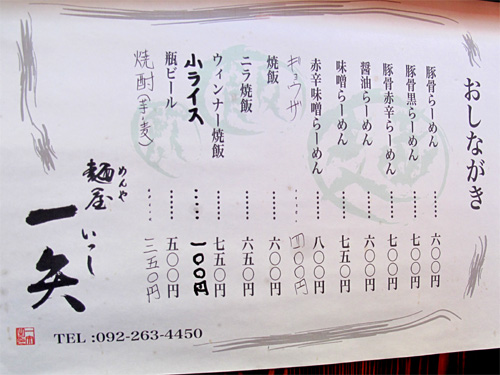 おしながき
豚骨らーめん……六〇〇円
豚骨黒らーめん……七〇〇円
豚骨赤辛らーめん……七〇〇円
醤油らーめん……六〇〇円
味噌らーめん……七五〇円
赤辛味噌らーめん……八〇〇円
ギョウザ……四〇〇円
焼飯……六〇〇円
ニラ焼飯……六五〇円
ウィンナー焼飯……七五〇円
小ライス……一〇〇円
瓶ビール……五〇〇円
焼酎(芋・麦)……三五〇円
めんや
麺屋
いっし
一矢
TEL :092-263-4450